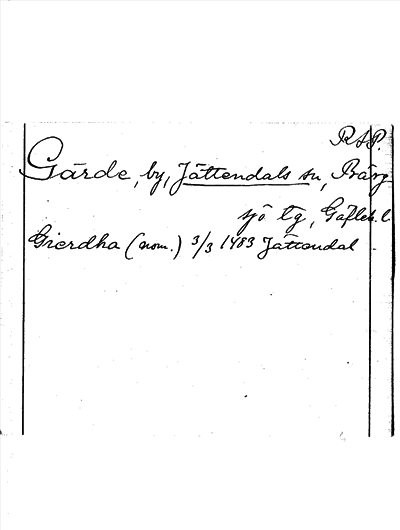 RAP.
Gärde, by, Jättendals sn, Bärg
sjö tg, Gäfleb. l
Gierdha (nom.) 3/3 1483 Jättendal.